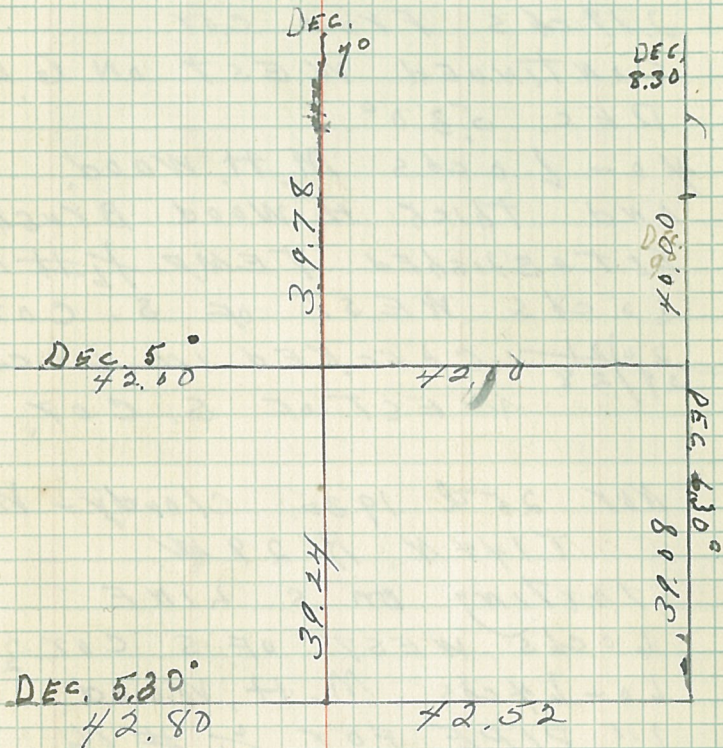 DEC.
7°
DEC.
8.30
39.78
40.00
DEC. 5°
42.00
42.00
DEC. 6.30°
39.24
39.08
DEC. 5.30°
42.80
42.52